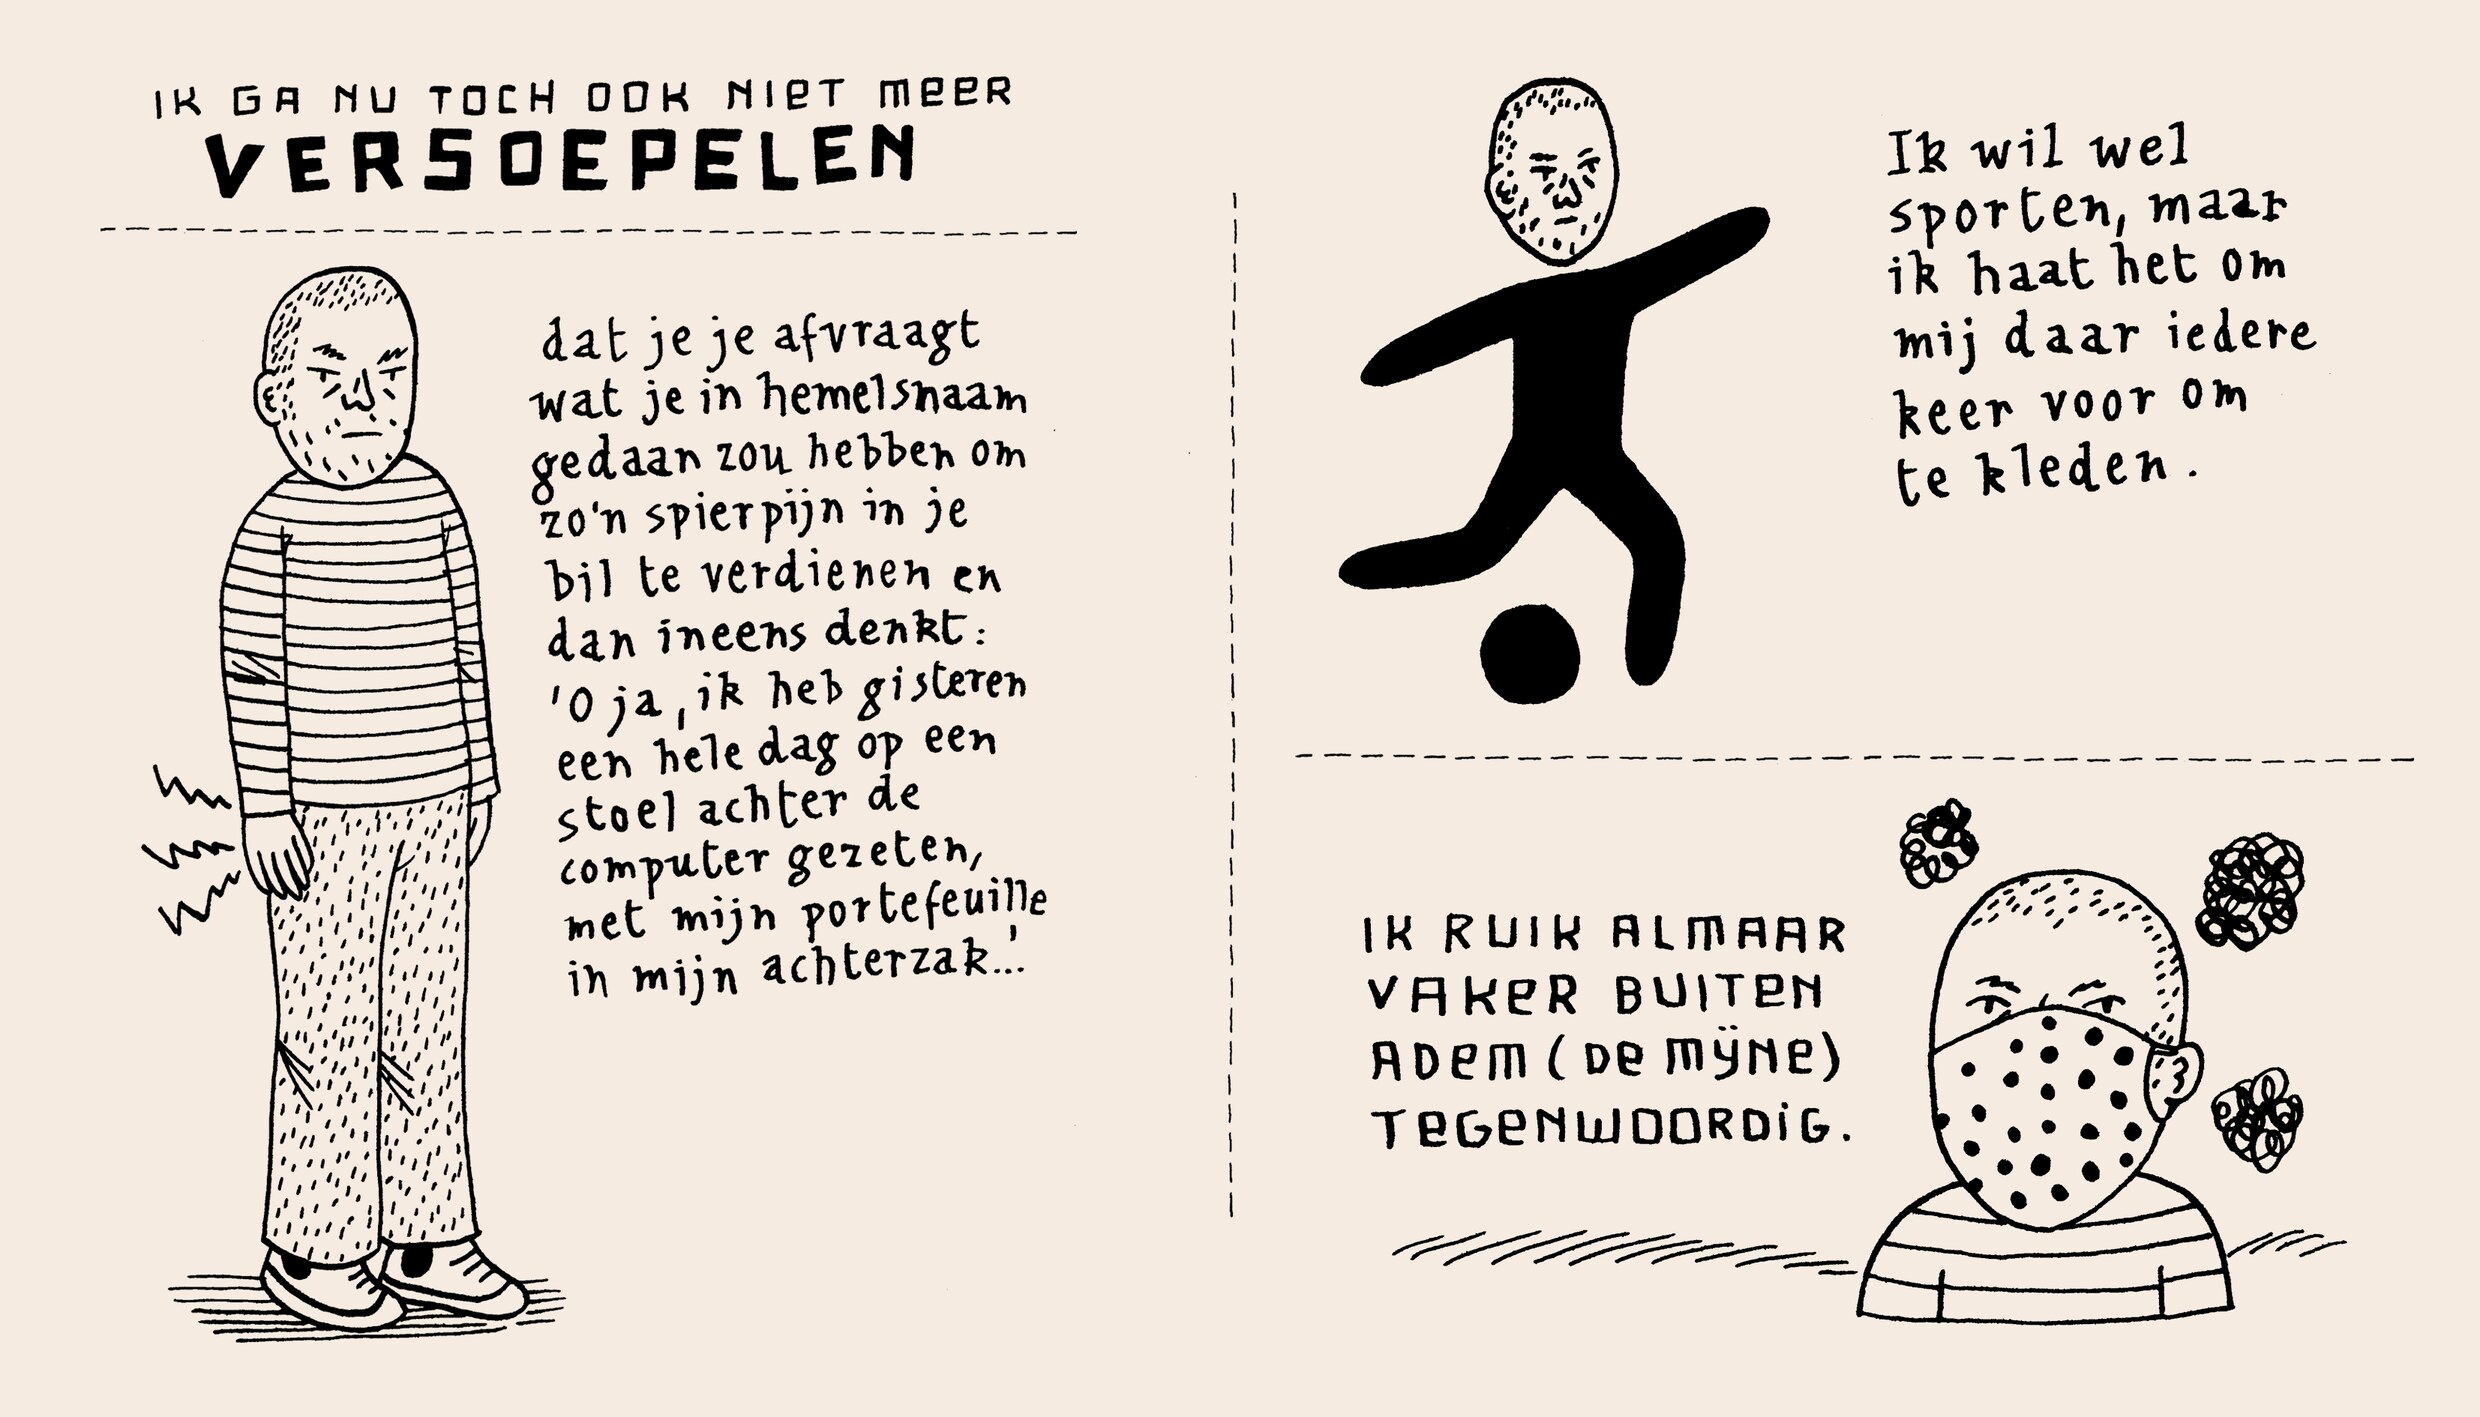 IK GA NU TOCH OOK NIET MEER
VERSOEPELEN
dat je je afvraagt
wat je in hemelsnaam
gedaan zou hebben om
zo'n spierpijn in je
bil te verdienen en
dan ineens denkt:
'O ja, ik heb gisteren
een hele dag op een
stoel achter de
computer gezeten,
met mijn portefeuille
in mijn achterzak...'
Ik wil wel
sporten, maar
ik haat het om
mij daar iedere
keer voor om
te kleden.
IK RUIK ALMAAR
VAKER BUITEN
ADEM (DE MŸNE)
TEGENWOORDIG.